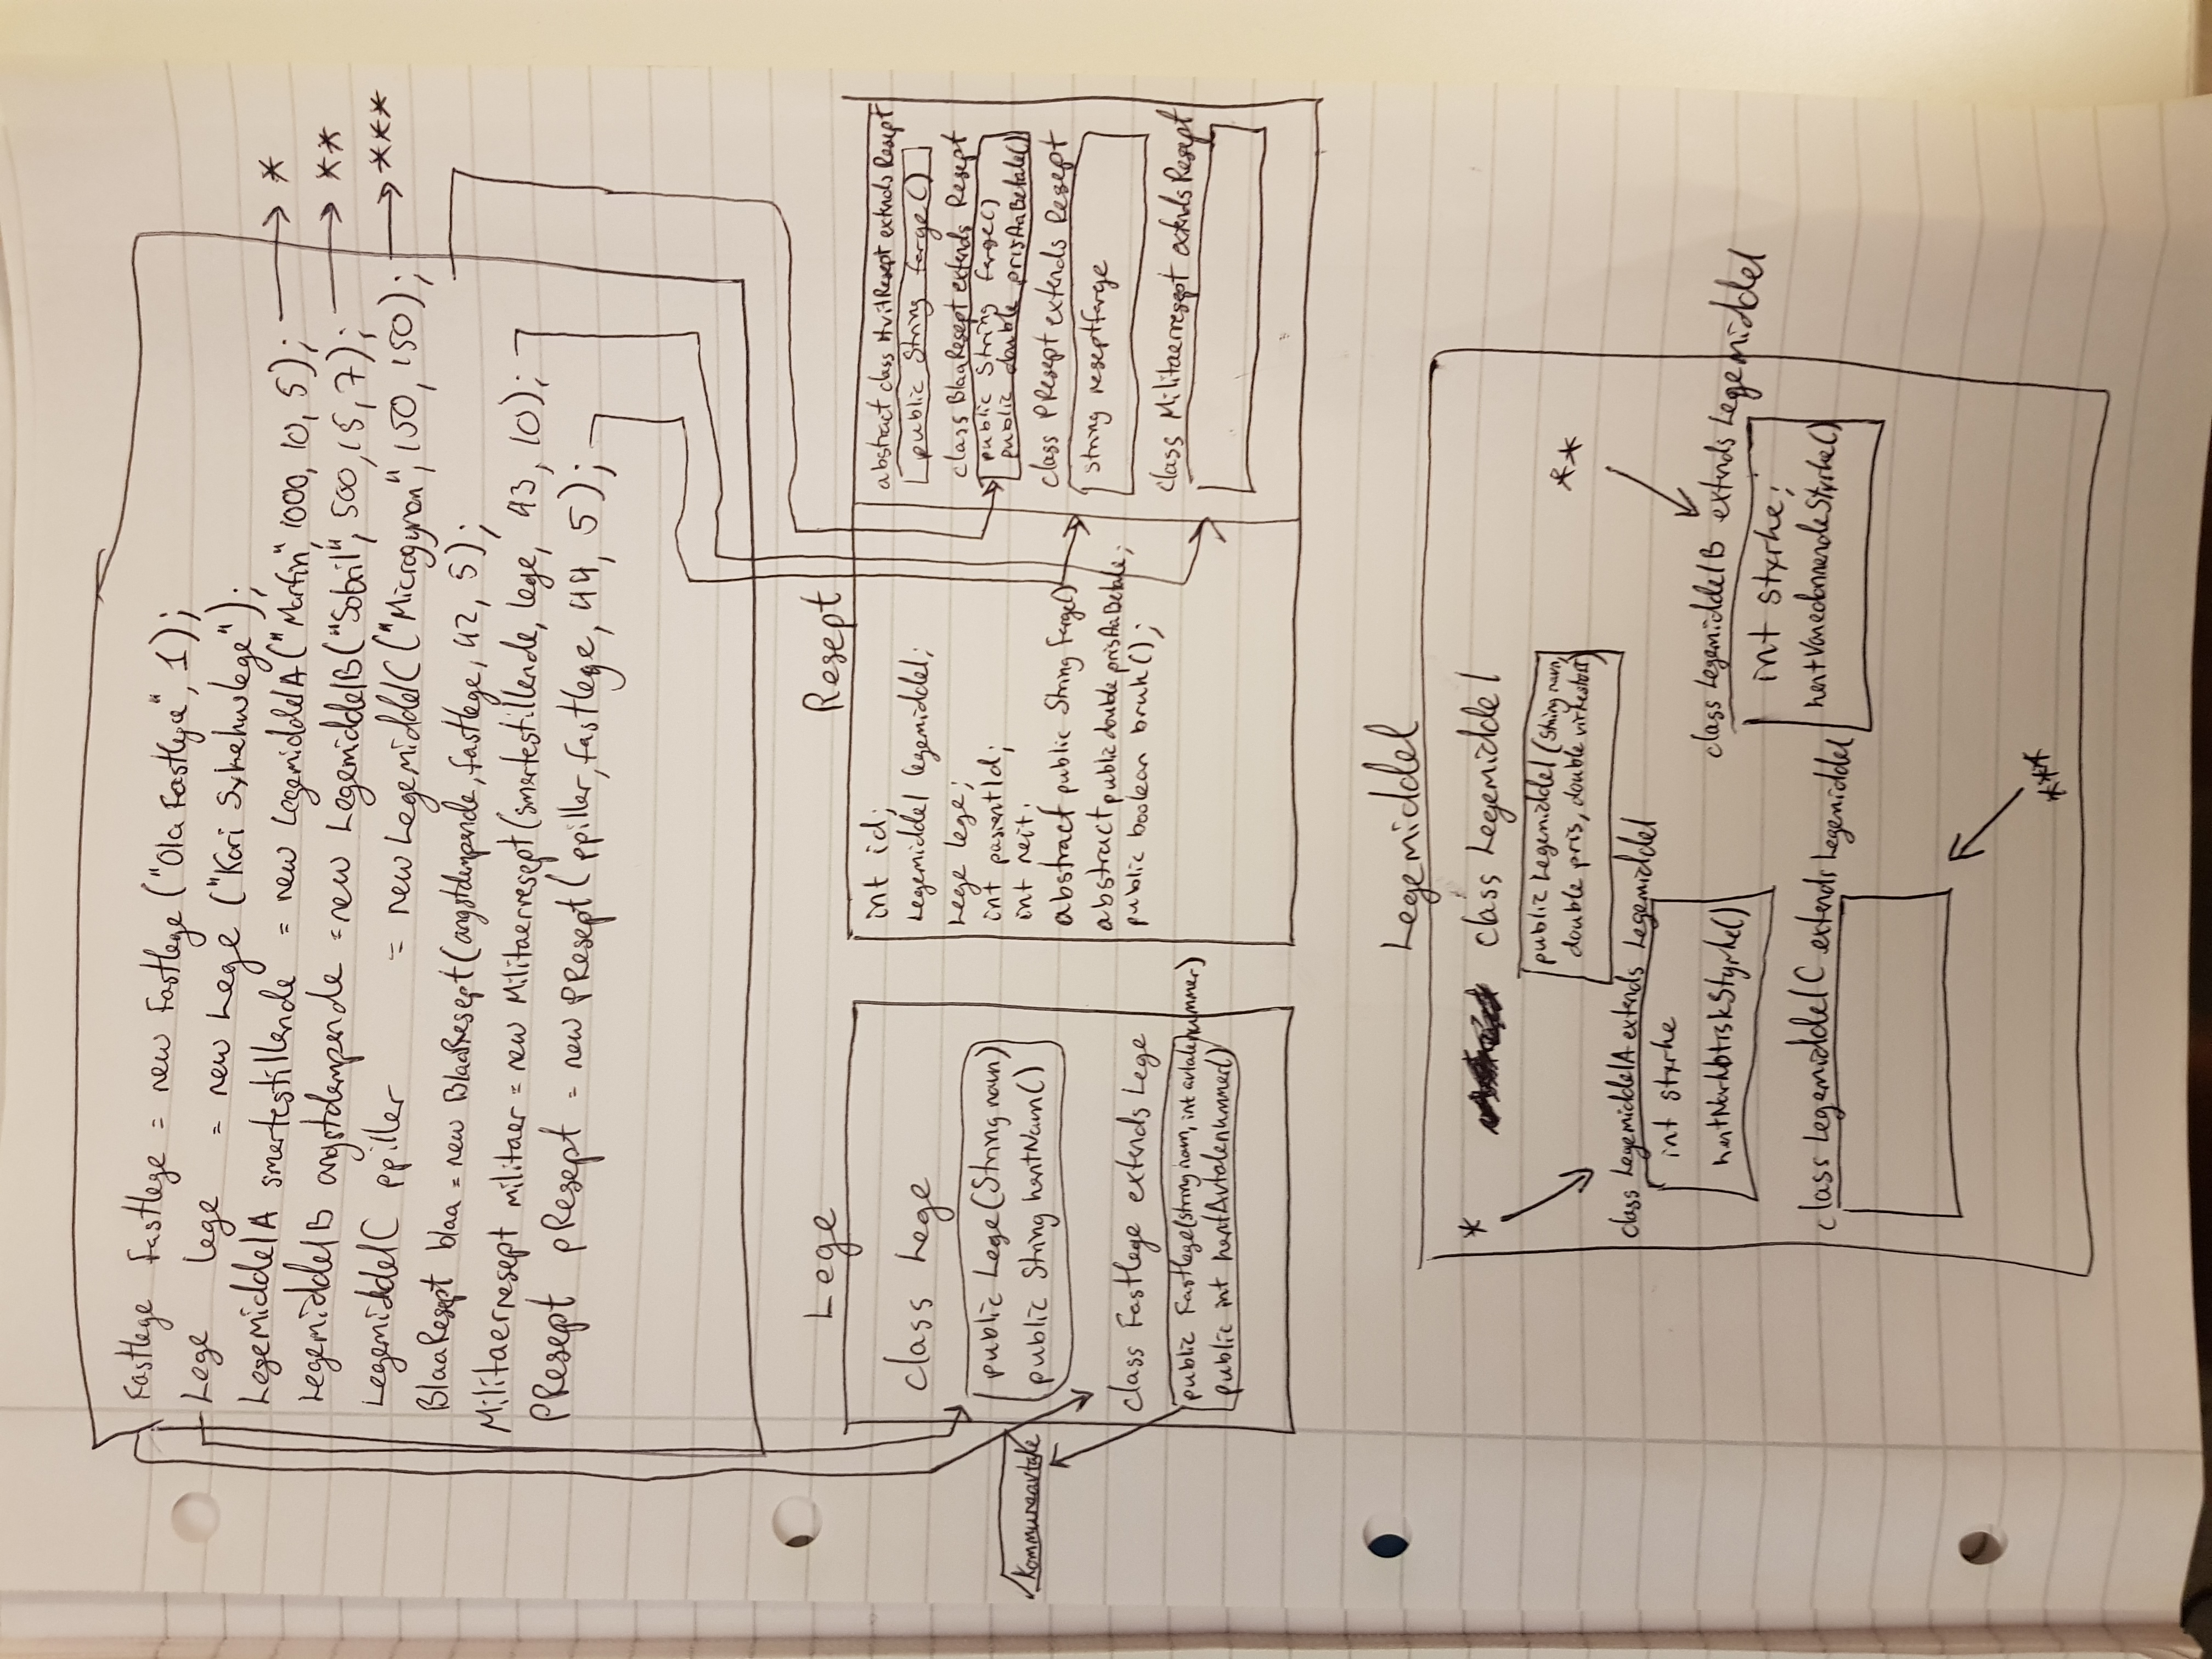 Fastlege fastlege = new Fastlege ("Ola Fastlege", 1);
Lege lege = new Lege ("Kari Sykehuslege");
LegemiddelA smertestillende = new LegemiddelA ("Morfin", 1000, 10, 5); → *
LegemiddelB angstdempende = new LegemiddelB ("Sobril", 500, 15, 7); → **
LegemiddelC ppiller = new LegemiddelC ("Microgynon", 150, 150); → ***
BlaaResept blaa = new BlaaResept (angstdempende, fastlege, 42, 5);
Militaerresept militaer = new Militaerresept (smertestillende, lege, 43, 10);
PResept pResept = new PResept ( ppiller, fastlege, 44, 5);
Lege
class Lege
public Lege (String navn)
public String hentNavn()
Kommuneavtale
class Fastlege extends Lege
public Fastlege(string navn, int avtalenummer)
public int hentAvtalenummer()
Resept
int id;
Legemiddel legemiddel;
Lege lege;
int pasientId;
int reit;
abstract public String farge()
abstract public double prisAaBetale;
public boolean bruk();
abstract class HvitResept extends Resept
public String farge()
class BlaaResept extends Resept
public String farge()
public double prisAaBetale()
class PResept extends Resept
String reseptfarge
class Militaerresept extends Resept
Legemiddel
*
class Legemiddel
public Legemiddel (String navn,
double pris, double virkestoff)
**
class LegemiddelA extends Legemiddel
int styrke
hentNarkotiskStyrke()
class LegemiddelB extends Legemiddel
int styrke;
hentVanedannendeStyrke()
class LegemiddelC extends Legemiddel
***